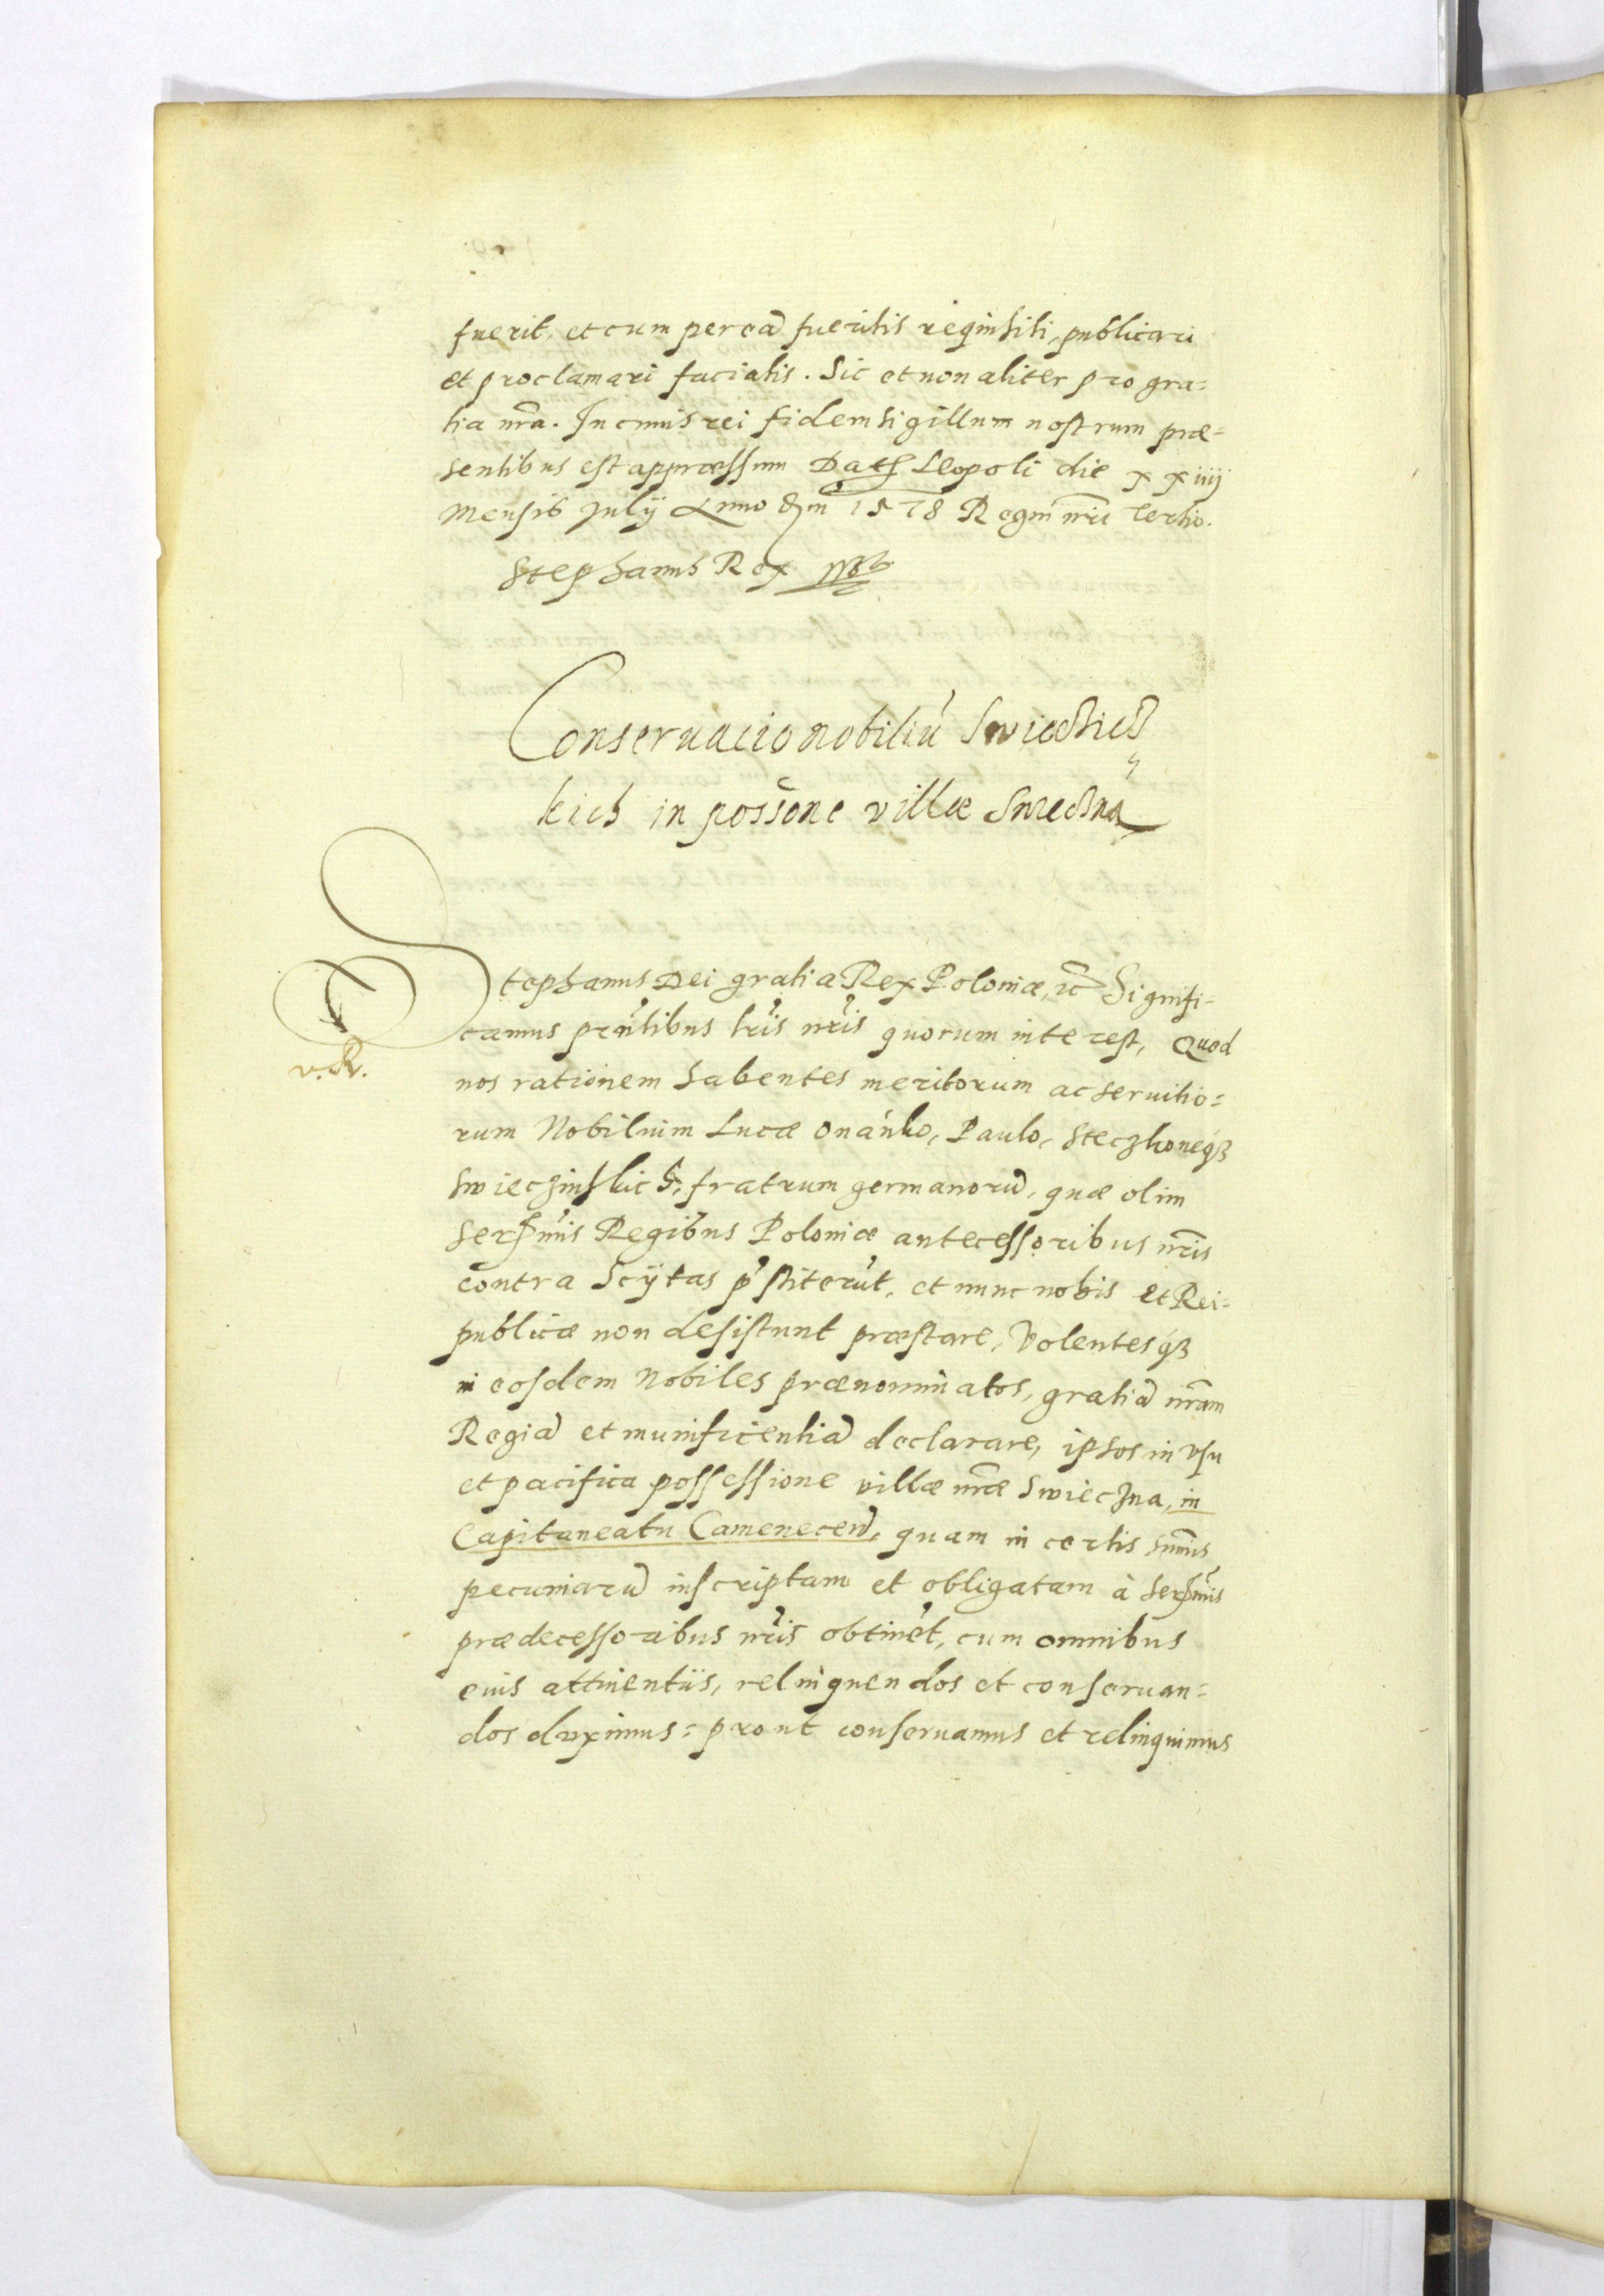 fuerit, et cum per eā fueritis requisiti, publicari
et proclamari faciatis. Sic et non aliter pro gra=
tia nr̄a. In cuius rei fidem sigillum nostrum præ=
sentibus est appræssum Datū Leopoli die xxiiij
Mensis Julij Anno Dm̄ 1578 Regni nr̄i Tertio.
Stephanus Rex
Conseruacio nobiliū
kich in possōne villæ
Stephanus Dei gratia Rex Poloniæ, etc̄ Signifi-
camus prn̄tibus lr̄is nr̄is quorum interest, Quod
v. R.
nos rationem habentes meritorum ac seruitio=
rum Nobilium Lucæ Onanko, Paulo, Steczkoneqȝ
Swieczinskich, fratrum germanorū, quæ olim
Serm̄is Regibus Poloniæ antecessoribus nr̄is
contra Scÿtas p̄stiterūt, et nunc nobis et Rei=
publicæ non desistunt præstare, Volentesqȝ
in eosdem Nobiles prænominatos, gratiā nr̄am
Regiā et munificentiā declarare, ipsos in vsu
et pacifica possessione villæ nr̄æ Swieczna, in
Capitaneatu Camenecen̄, quam in certis sum̄is
pecuniarū inscriptam et obligatam à Serm̄is
prædecessoribus nr̄is obtinēt, cum omnibus
eius attinentiis, relinquendos et conseruan=
dos duximus: prout conseruamus et relinquimus